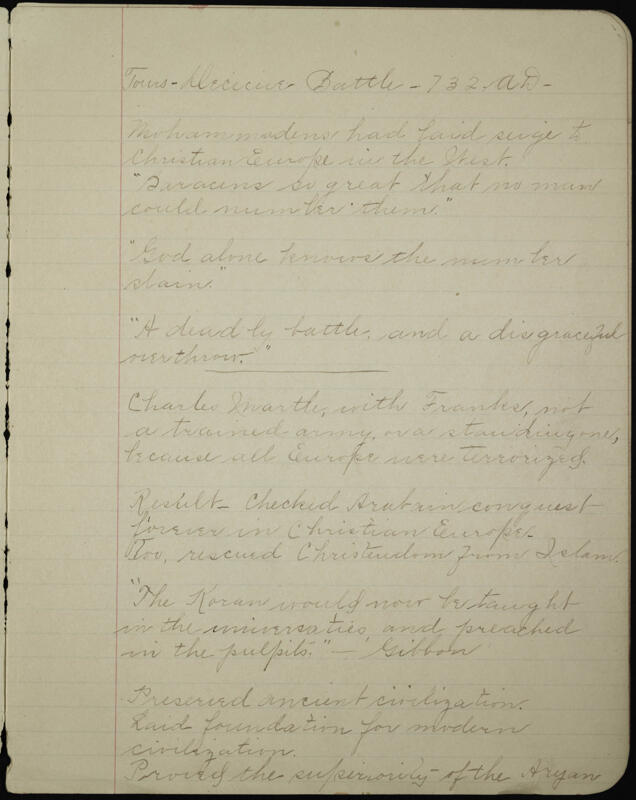 Tours - Decicive Battle - 732 A D -
Mohammadens had laid seige to
Christian Europe in the West.
"Saracens so great that no man
could number them."
"God alone knows the number
slain."
"A deadly battle, and a disgraceful
overthrow."
Charles Martle, with Franks, not
a trained army, or a standing one,
because all Europe were terrorized.
Result - Checked Arabian conquest
forever in Christian Europe -
Too, rescued Christendom from Islam.
"The Koran would now be taught
in the universaties and preached
in the pulpits." - Gibbon
Preserved ancient civilization.
Laid foundation for modern
civilization.
Proved the superiority of the Aryan